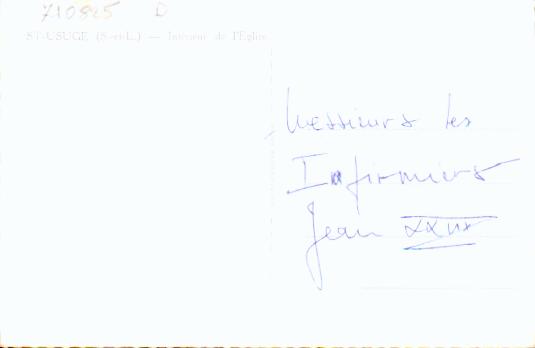 710825 D
ST-USUGE (S.-et-L.) — Intérieur de l'Église
Messieurs les
Infirmiers
Jean